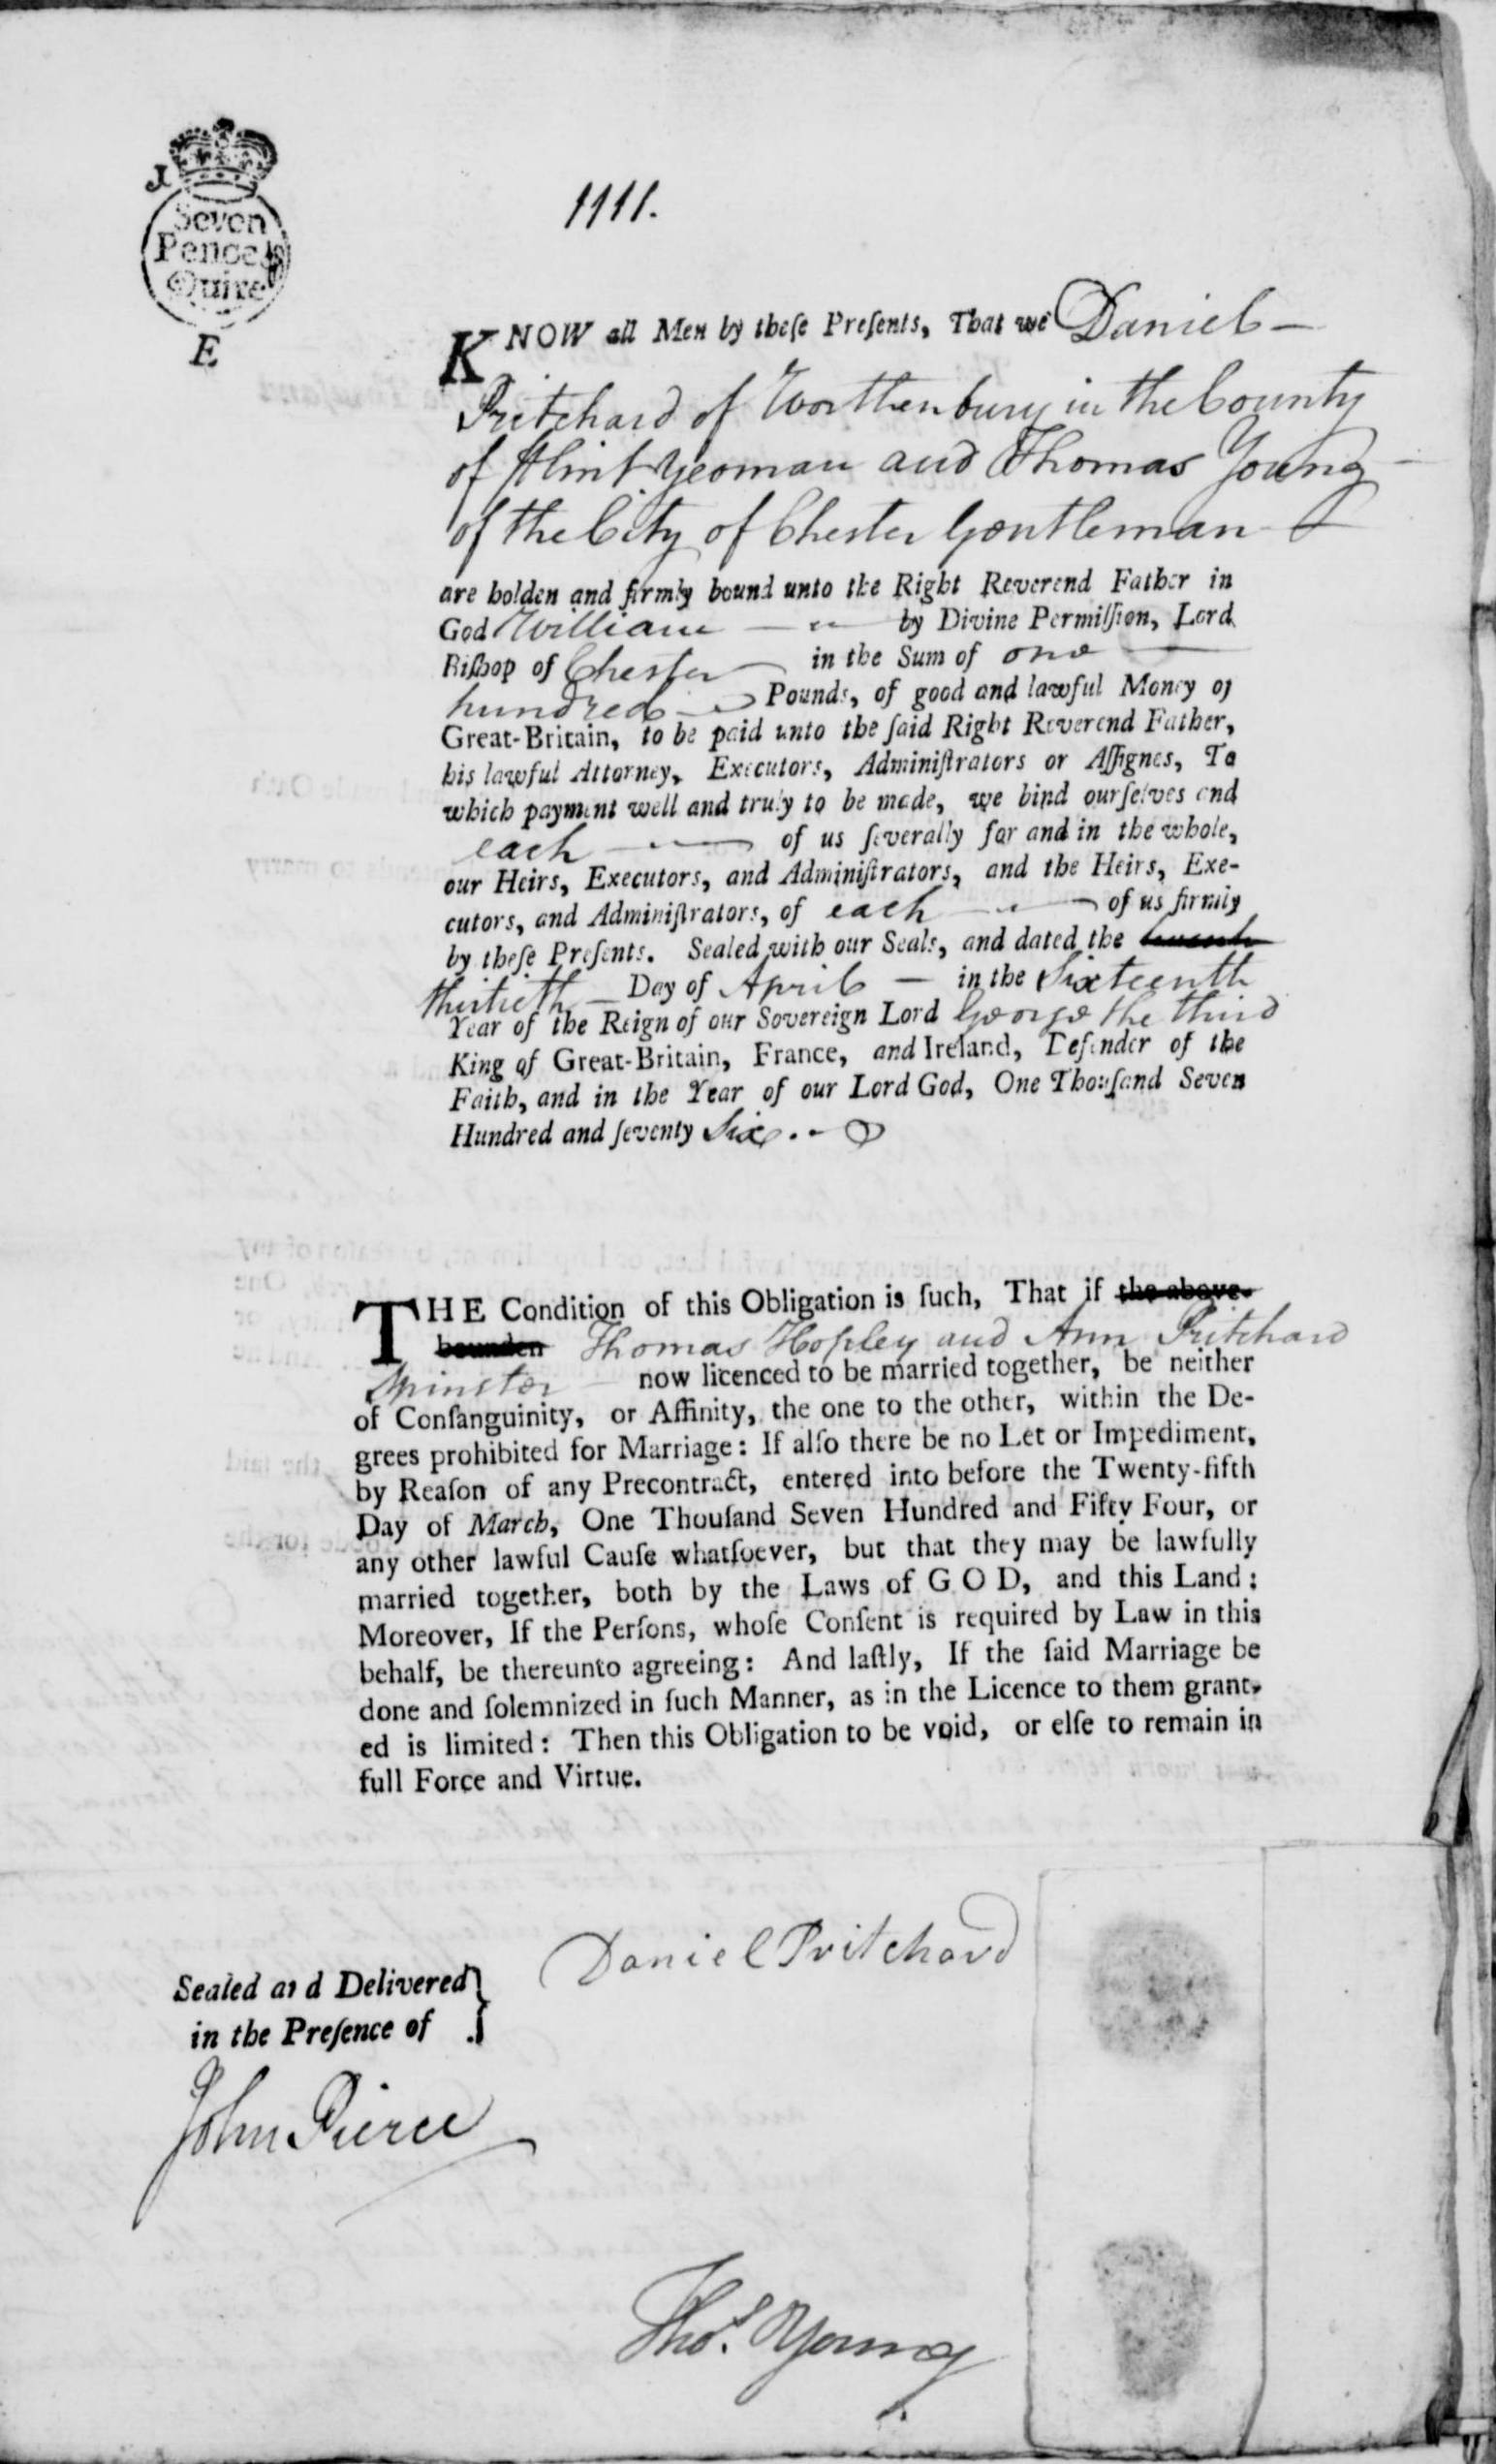 J
Seven
Pence
Quire
E
1111.
KNOW all Men by theſe Preſents, That we Daniel —
Pritchard of Worthenbury in the County
of Flint Yeoman and Thomas Young —
of the City of Chester Gentleman
are holden and firmly bound unto the Right Reverend Father in
God William — by Divine Permiſſion, Lord
Biſhop of Chester — in the Sum of one —
hundred — Pounds, of good and lawful Money of
Great-Britain, to be paid unto the ſaid Right Reverend Father,
his lawful Attorney, Executors, Adminiſtrators or Aſſignes, To
which payment well and truly to be made, we bind ourſelves and
each — of us ſeverally for and in the whole,
our Heirs, Executors, and Adminiſtrators, and the Heirs, Exe-
cutors, and Adminiſtrators, of each — of us firmly
by theſe Preſents. Sealed with our Seals, and dated the
thirtieth — Day of April — in the Sixteenth
Year of the Reign of our Sovereign Lord George the third
King of Great-Britain, France, and Ireland, Defender of the
Faith, and in the Year of our Lord God, One Thouſand Seven
Hundred and ſeventy Six . -
THE Condition of this Obligation is ſuch, That if the above-
bounden Thomas Hopley and Ann Pritchard
Spinster now licenced to be married together, be neither
of Conſanguinity, or Affinity, the one to the other, within the De-
grees prohibited for Marriage: If alſo there be no Let or Impediment,
by Reaſon of any Precontract, entered into before the Twenty-fifth
Day of March, One Thouſand Seven Hundred and Fifty Four, or
any other lawful Cauſe whatſoever, but that they may be lawfully
married together, both by the Laws of GOD, and this Land:
Moreover, If the Perſons, whoſe Conſent is required by Law in this
behalf, be thereunto agreeing: And laſtly, If the ſaid Marriage be
done and ſolemnized in ſuch Manner, as in the Licence to them grant-
ed is limited: Then this Obligation to be void, or elſe to remain in
full Force and Virtue.
Daniel Pritchard
Sealed and Delivered
in the Preſence of
John Pierce
Thos. Young